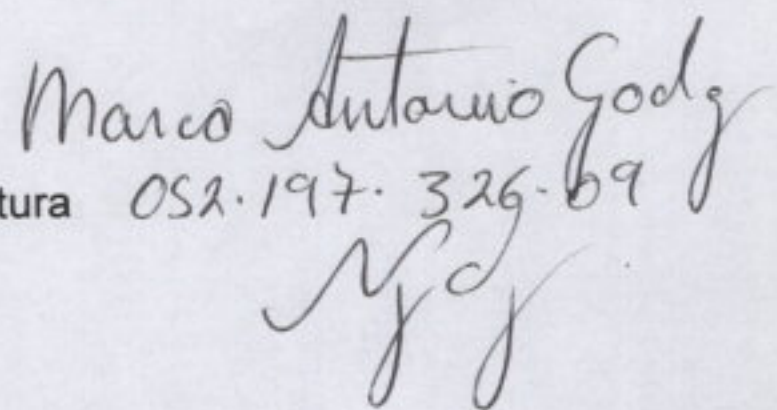 Marco Antonio Gody
tura 052.197.326-09